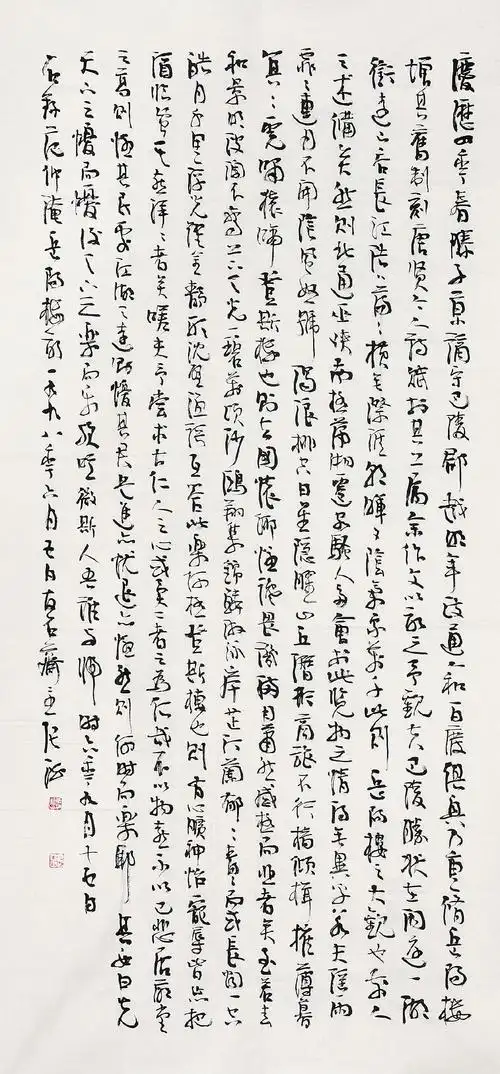 慶歷四年春滕子京謫守巴陵郡越明年政通人和百廢俱興乃重修岳陽樓
增其舊制刻唐賢今人詩賦於其上屬余作文以記之予觀夫巴陵勝狀在洞庭一湖
銜遠山吞長江浩浩湯湯橫無際涯朝暉夕陰氣象萬千此則岳陽樓之大觀也前人
之述備矣然則北通巫峽南極瀟湘遷客騷人多會於此覽物之情得無異乎若夫霪雨
霏霏連月不開陰風怒號濁浪排空日星隱曜山岳潛形商旅不行檣傾楫摧薄暮
冥冥虎嘯猿啼登斯樓也則有去國懷鄉憂讒畏譏滿目蕭然感極而悲者矣至若春
和景明波瀾不驚上下天光一碧萬頃沙鷗翔集錦鱗游泳岸芷汀蘭郁郁青青而或長烟一空
皓月千里浮光躍金靜影沉璧漁歌互答此樂何極登斯樓也則有心曠神怡寵辱皆忘把
酒臨風其喜洋洋者矣嗟夫予嘗求古仁人之心或異二者之為何哉不以物喜不以己悲居廟堂
之高則憂其民處江湖之遠則憂其君是進亦憂退亦憂然則何時而樂耶其必曰先
天下之憂而憂後天下之樂而樂歟噫微斯人吾誰與歸時六年九月十五日
右錄范仲淹岳陽樓記一九九八年六月七日石齋主張